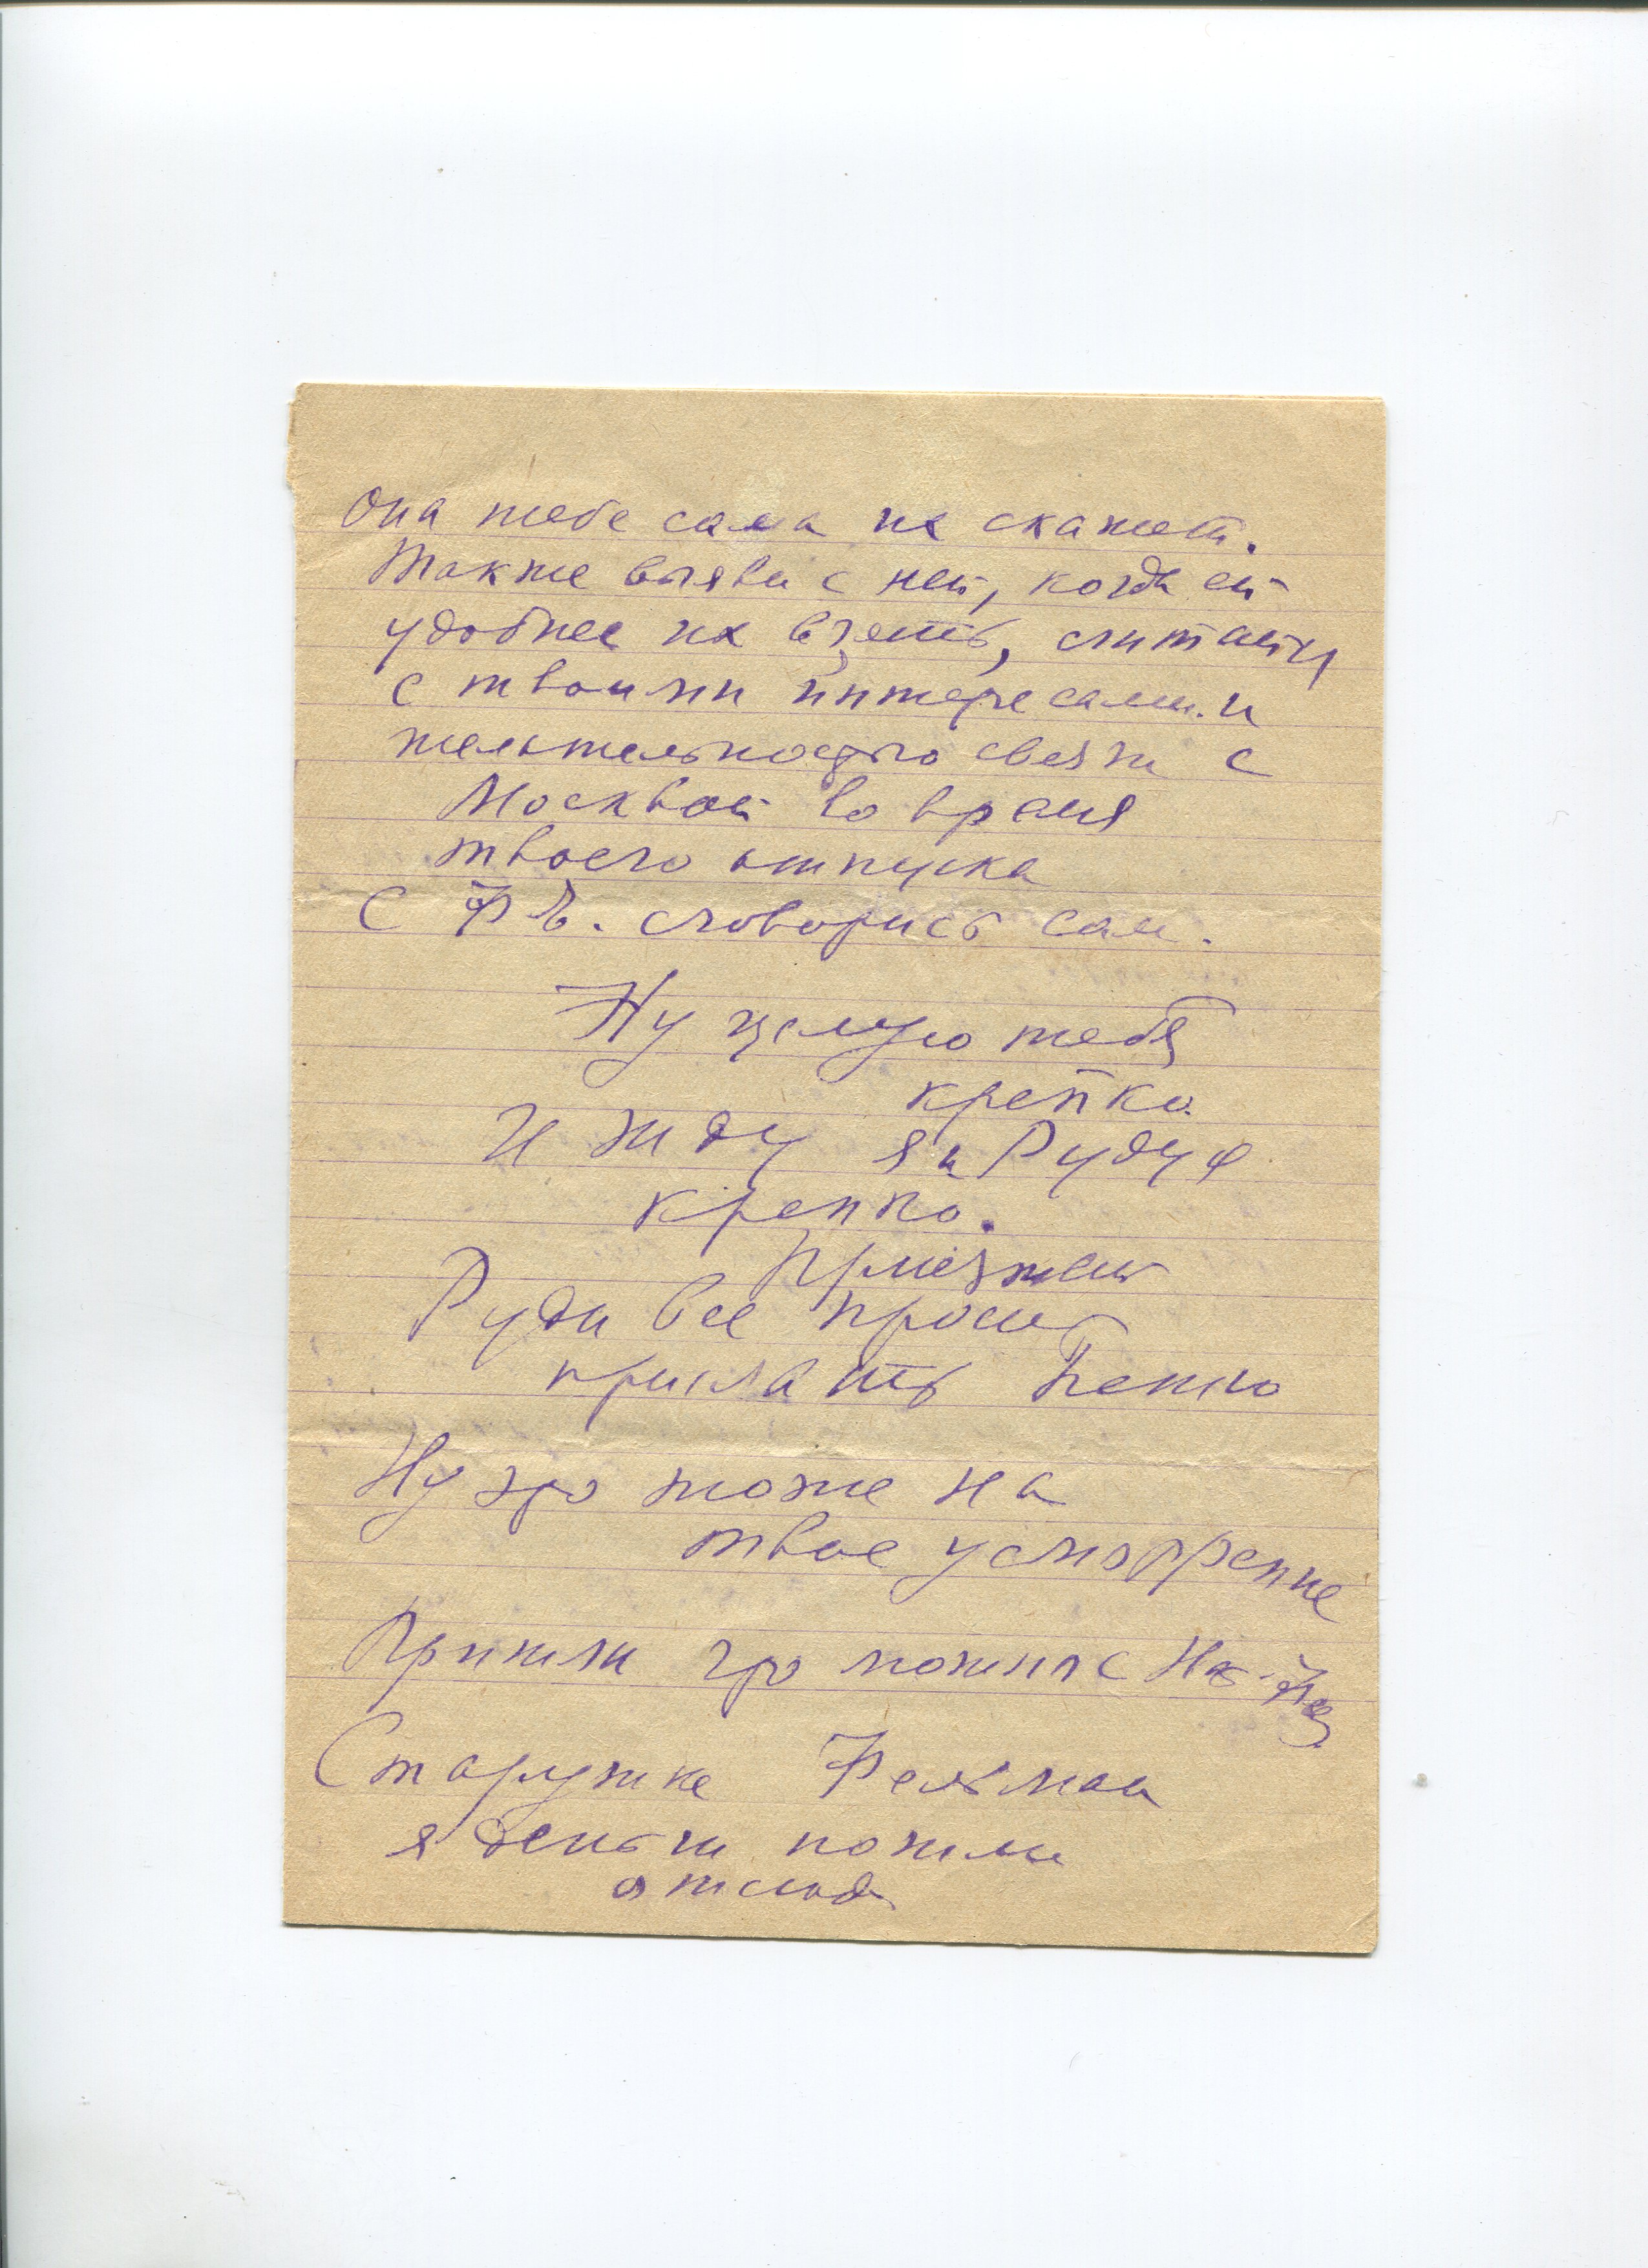 Она тебе сама не скажет.
Также выяви с ней, когда ей
удобнее их взять, считаясь
с твоими интересами и
желательностью связи с
Москвой во время
твоего отпуска
С сговорись сам.
Ну целую тебя
крепко.
И жду я и Рудуся
крепко.
Приезжай
Руди все просит
прислать
Ну это тоже на
твое усмотрение
Пришли что можешь с
Старушке Фельман
я деньги пошлю
отсюда